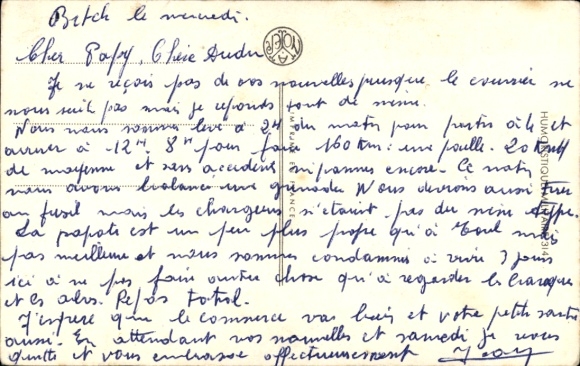 Bitche le mercredi.
Cher Papy, Chère
Je ne reçois pas de vos nouvelles puisque le courrier ne
nous suit pas mais je réponds tout de même.
Nous nous sommes levé à 2H du matin pour partir à 4 et
arriver à 12H. 8H pour faire 160 Km : une paille. 20 km/h
de moyenne et sans accident ni pannes encore. Ce matin
nous avons balancé une grenade. Nous devrions aussi tirer
au fusil mais les chargeurs n'étaient pas du même type.
La popote est un peu plus propre qu'à Toul mais
pas meilleure et nous sommes condamnés à vivre 3 jours
ici à ne pas faire autre chose qu'à regarder les baraques
et les abris. Repos total.
J'espère que le commerce va bien et votre petite santé
aussi. En attendant vos nouvelles et samedi je vous
quitte et vous embrasse affectueusement Jean